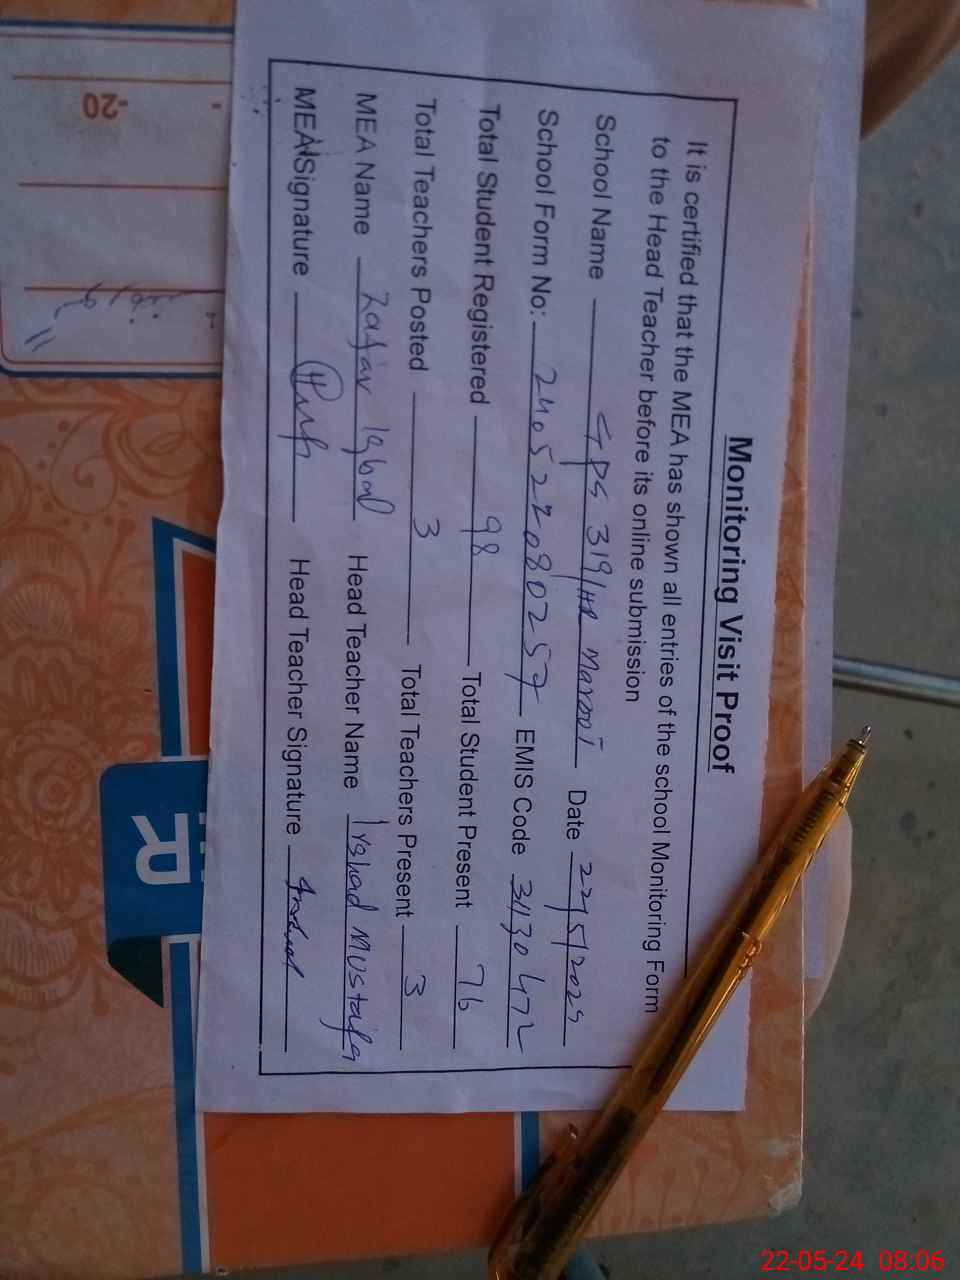 Monitoring Visit Proof
It is certified that the MEA has shown all entries of the school Monitoring Form
to the Head Teacher before its online submission
School Name GPS 319/HR Maroot Date 22/5/2024
School Form No: 240522080257 EMIS Code 31130472
Total Student Registered 98 Total Student Present 76
Total Teachers Posted 3 Total Teachers Present 3
MEA Name Zafar Iqbal Head Teacher Name Irshad Mustafa
MEA Signature Head Teacher Signature
-20
R
22-05-24 08:06